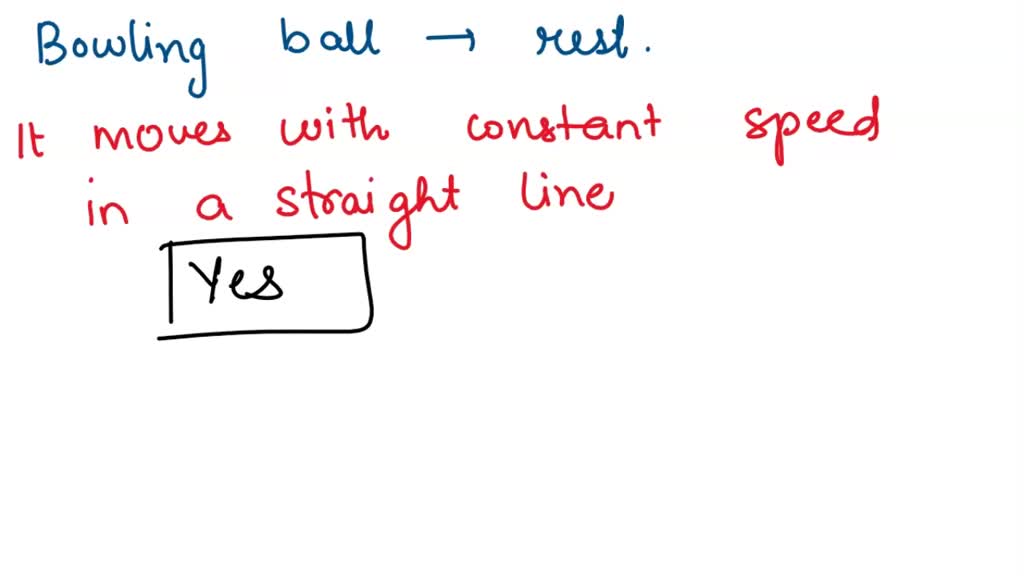 Bowling ball → rest.
It moves with constant speed
in a straight line
Yes